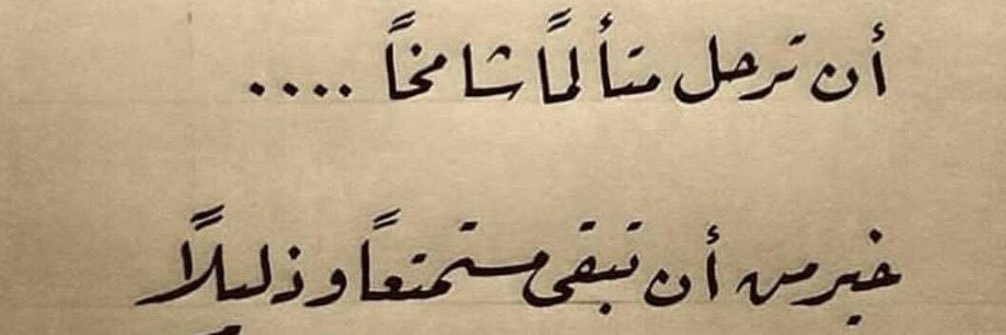 أن ترحل متألمًا شامخًا ....
خير من أن تبقى مستمتعًا وذليلًا